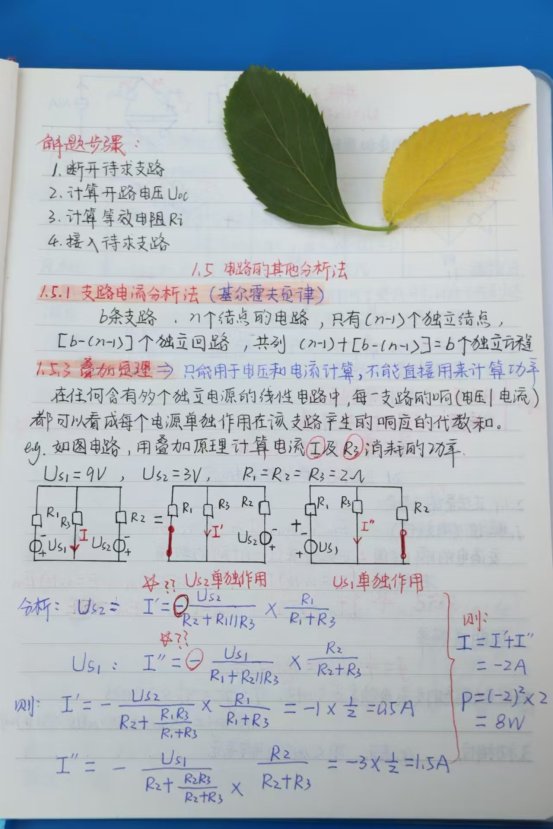 解题步骤:
1. 断开待求支路
2. 计算开路电压Uoc
3. 计算等效电阻Ri
4. 接入待求支路
1.5 电路的其他分析法
1.5.1 支路电流分析法 (基尔霍夫定律)
b条支路、n个结点的电路,只有(n-1)个独立结点,
[b-(n-1)]个独立回路,共列(n-1)+[b-(n-1)]=b个独立方程
1.5.3 叠加原理 ⇒ 只能用于电压和电流计算,不能直接用来计算功率
在任何含有多个独立电源的线性电路中,每一支路的响(电压|电流)
都可以看成每个电源单独作用在该支路产生的响应的代数和。
e.g. 如图电路,用叠加原理计算电流I及R3消耗的功率.
Us1=9V, Us2=3V, R1=R2=R3=2Ω
R1 R3 I R2 Us1 Us2 - + - + = R1 R3 I' R2 Us2 - + + R1 R3 I'' R2 Us1 - +
Us2单独作用 Us1单独作用
??
分析: Us2= I'=- Us2/(R2+R1||R3) × R1/(R1+R3)
??
Us1: I''=- Us1/(R1+R2||R3) × R2/(R2+R3)
则: I'=- Us2/(R2+R1R3/(R1+R3)) × R1/(R1+R3) = -1×1/2=0.5A
I''=- Us1/(R2+R2R3/(R2+R3)) × R2/(R2+R3) = -3×1/2=1.5A
则:
I=I'+I''
=-2A
P=(-2)²×2
=8W